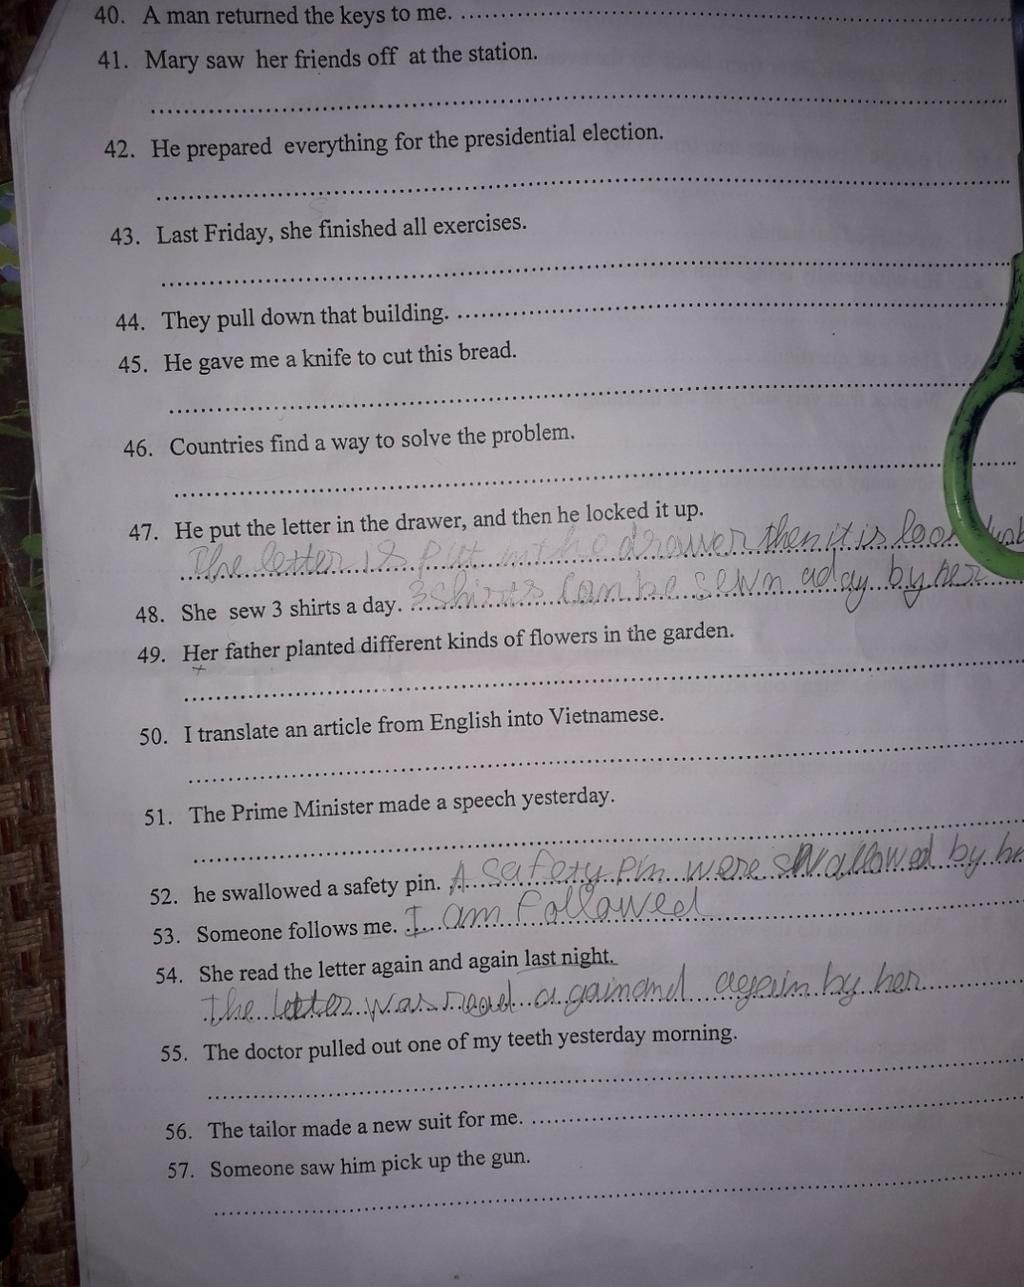 40. A man returned the keys to me. ..........
41. Mary saw her friends off at the station.
42. He prepared everything for the presidential election.
43. Last Friday, she finished all exercises.
44. They pull down that building. ..........
45. He gave me a knife to cut this bread.
46. Countries find a way to solve the problem.
47. He put the letter in the drawer, and then he locked it up.
The letter is put in the drawer then it is
48. She sew 3 shirts a day. 3 shirts can be sewn aday by her
49. Her father planted different kinds of flowers in the garden.
50. I translate an article from English into Vietnamese.
51. The Prime Minister made a speech yesterday.
52. he swallowed a safety pin. A safety pin were swallowed by
53. Someone follows me. I am followed
54. She read the letter again and again last night.
the letter was read again and again by her
55. The doctor pulled out one of my teeth yesterday morning.
56. The tailor made a new suit for me. ..........
57. Someone saw him pick up the gun.